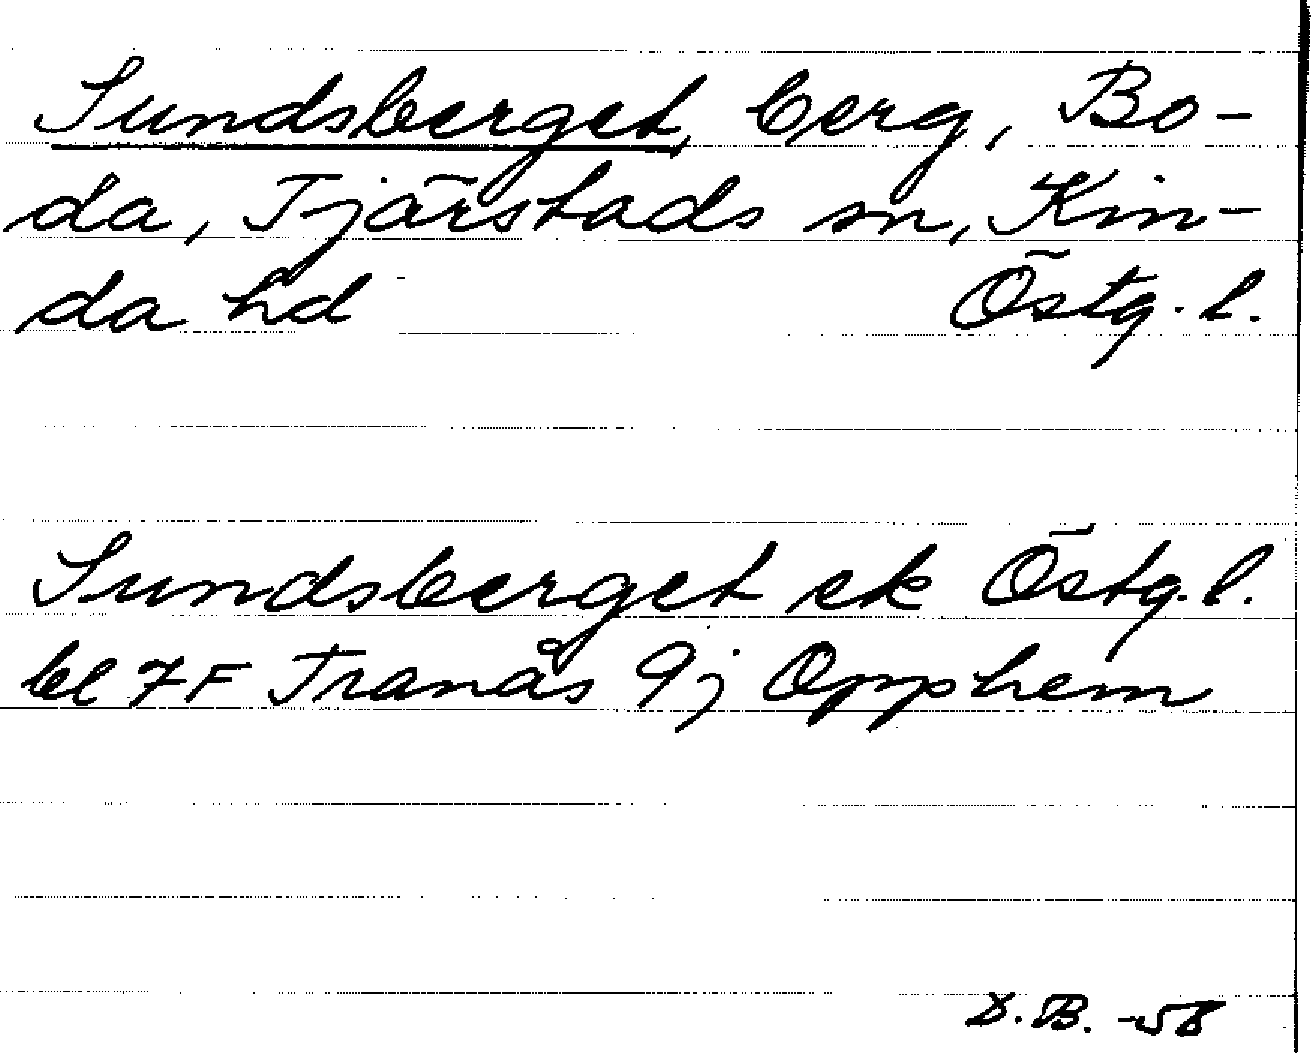 Sundsberget, berg, Bo-
da, Tjärstads sn, Kin-
da hd Östg. l.
Sundsberget ek Östg. l.
bl 7F Tranås 9j Opphem
D.B. -58